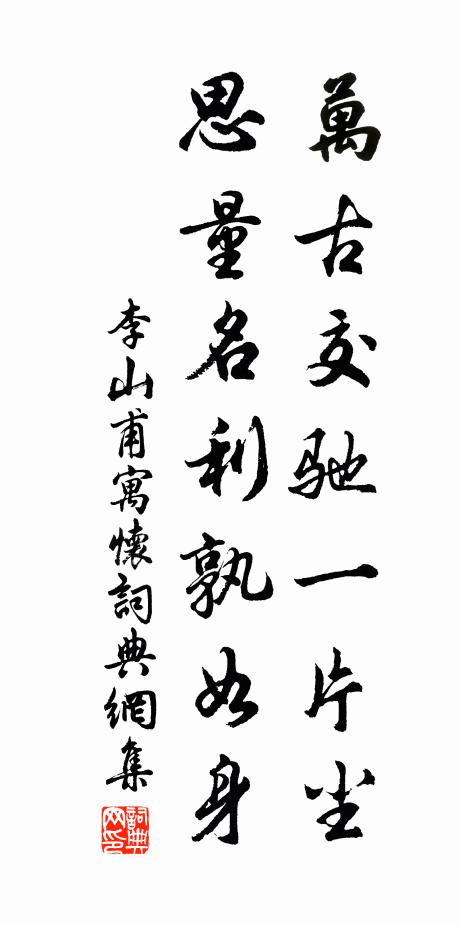 萬古交馳一片尘
思量名利孰如身
李山甫寓懷詞典網集
詞典网印